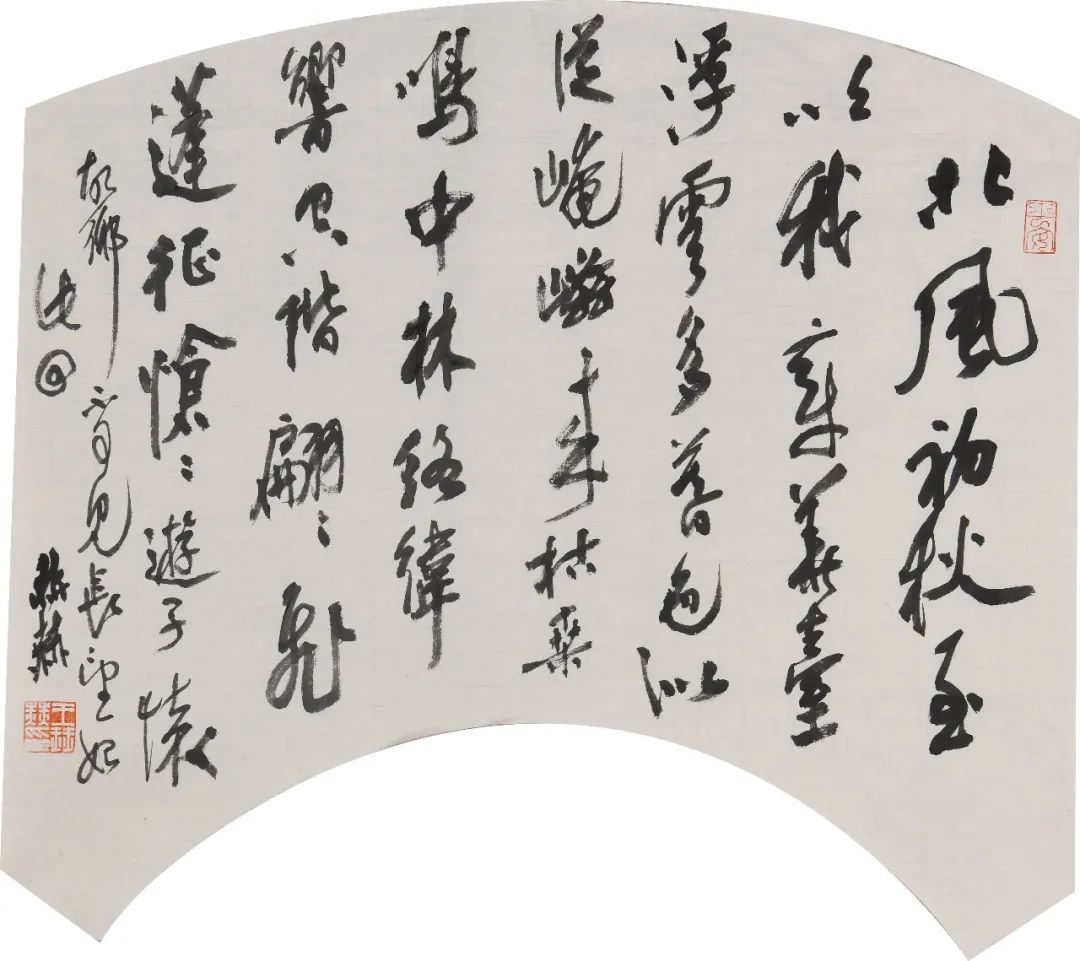 北風初秋至
吹我章華臺
浮雲多暮色似
從崦嵫来枯桑
鳴中林絡緯
響空階翩〻飛
蓬征愴〻遊子懷
故鄉不可見長望始
此回